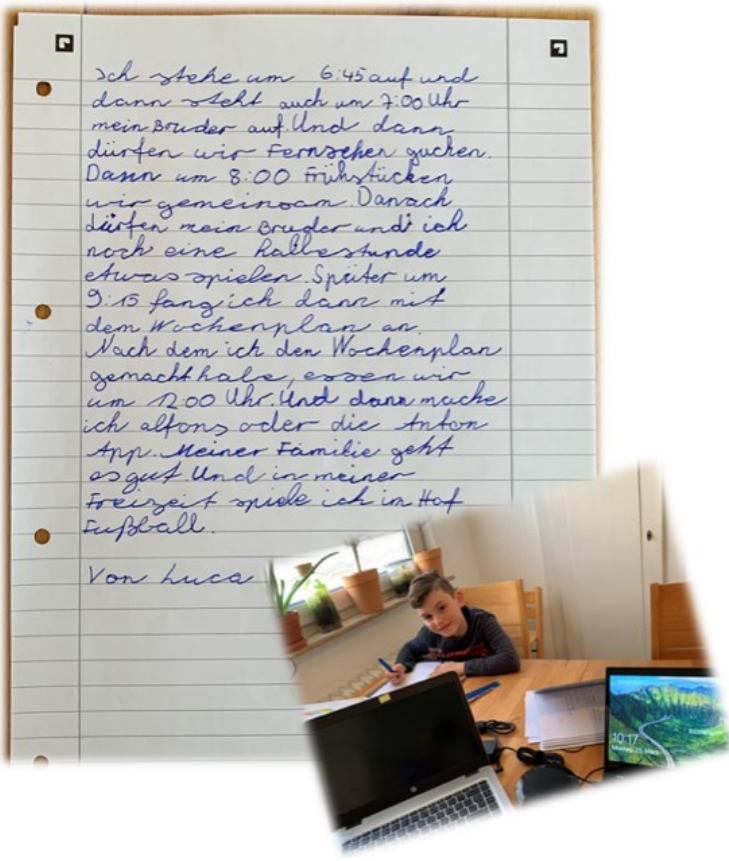 Ich stehe um 6:45 auf und
dann steht auch um 7:00 Uhr
mein Bruder auf. Und dann
dürfen wir Fernsehen gucken.
Dann um 8:00 Frühstücken
wir gemeinsam. Danach
dürfen mein Bruder und ich
noch eine halbestunde
etwas spielen. Später um
9:15 fang ich dann mit
dem Wochenplan an.
Nach dem ich den Wochenplan
gemacht habe, essen wir
um 12:00 Uhr. Und dann mache
ich alfons oder die Anton
App. Meiner Familie geht
es gut. Und in meiner
Freizeit spiele ich im Hof
Fußball.
Von Luca
10:17
Montag, 23. März